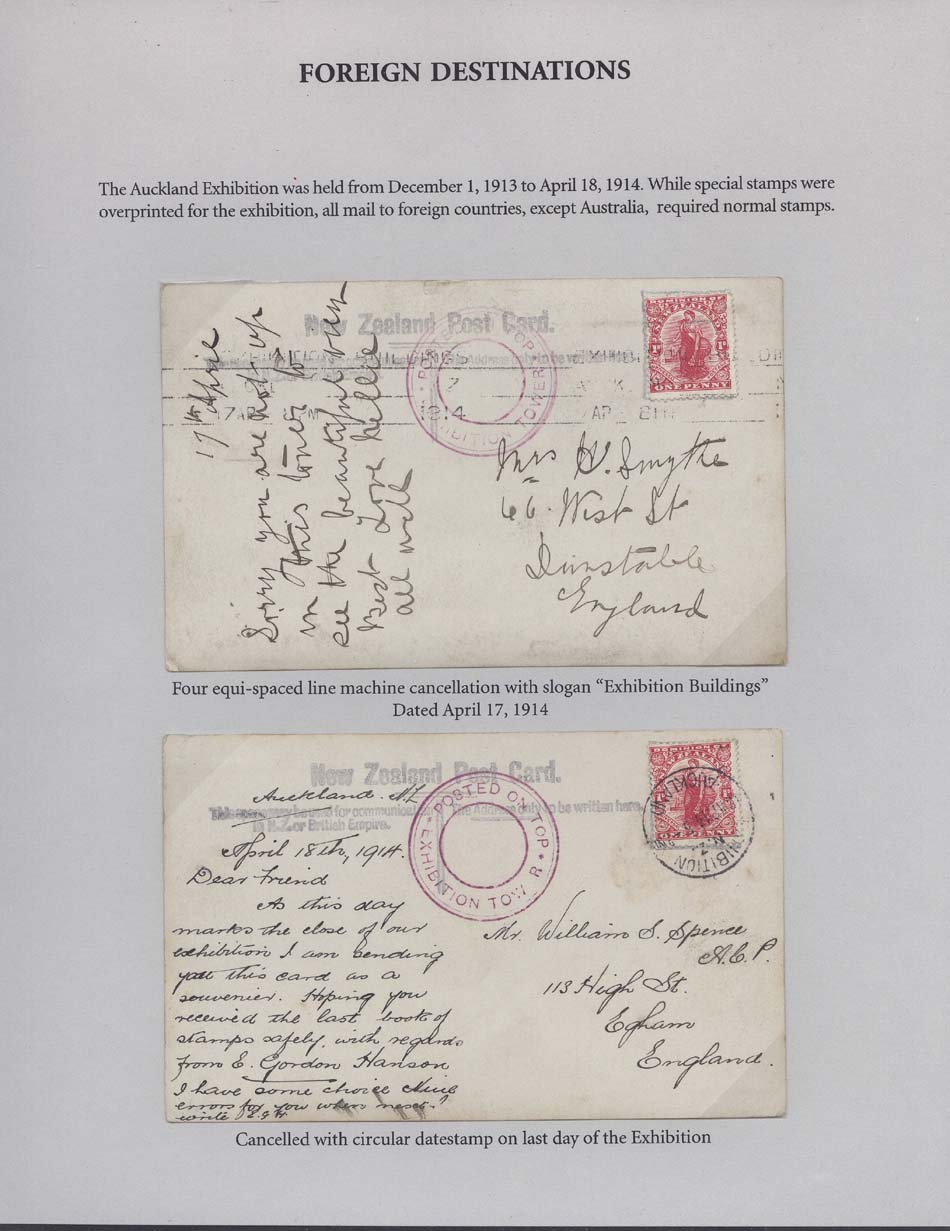 FOREIGN DESTINATIONS
The Auckland Exhibition was held from December 1, 1913 to April 18, 1914. While special stamps were
overprinted for the exhibition, all mail to foreign countries, except Australia, required normal stamps.
New Zealand Post Card.
DOMINION OF
ZEALAND
1d 1d
ONE PENNY
TOP
EXHIBITION TOWER
1914
17th April
Sorry you are not up
in this tower to
see the beautiful view
Best Love Nellie
all well
Mrs H. Smythe
66. West St
Dunstable
England
Four equi-spaced line machine cancellation with slogan “Exhibition Buildings”
Dated April 17, 1914
New Zealand Post Card.
This space may be used for communication
in N.Z. or British Empire.
The Address only to be written here.
DOMINION OF
ZEALAND
ONE PENNY
EXHIBITION
AUCKLAND
N.Z.
POSTED ON TOP
EXHIBITION TOW R
Auckland. NZ
April 18th, 1914.
Dear Friend
As this day
marks the close of our
exhibition I am sending
you this card as a
souvenier. Hoping you
received the last book of
stamps safely, with regards
from E. Gordon Hanson
I have some choice Niue
errors for you when next
write E.G.H.
Mr. William S. Spence
A.C.P.
113 High St.
Egham
England.
Cancelled with circular datestamp on last day of the Exhibition